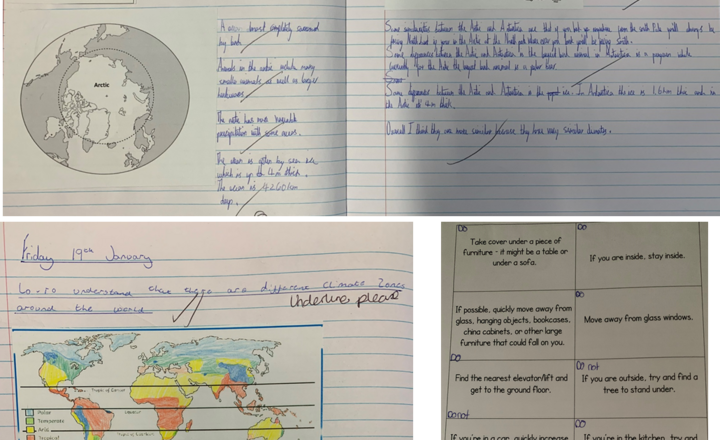 Arctic
A
almost completely surrounded
by land.
Animals in the arctic include many
smaller animals as well as larger
The arctic has
precipitation with some
The ocean is often by sea ice,
which is up to 4m thick.
The ocean is 4260km
deep.
Some similarities between the Arctic and Antarctica are that if you
facing North and if you're in the Arctic at the North pole
you'll be facing South.
Some differences between the Arctic and Antarctica is the
land animal in Antarctica is a penguin while
for the Arctic the largest land animal is a polar bear.
Some differences between the Arctic and Antarctica is the ice. In Antarctica the ice is 1.6km thick and in
the Arctic it 4m thick.
Overall I think they are more similar because they have very similar climates.
Friday 19th January
L.o-To understand that there are different climate zones
around the world
Underline please
Tropic of Cancer
Equator
Tropic of Capricorn
Polar
Temperate
Arid
Tropical
Do
Take cover under a piece of
furniture - it might be a table or
under a sofa.
Do
If you are inside, stay inside.
If possible, quickly move away from
glass, hanging objects, bookcases,
china cabinets, or other large
furniture that could fall on you.
Do
Move away from glass windows.
Do
Find the nearest elevator/lift and
get to the ground floor.
Do not
If you are outside, try and find a
tree to stand under.
Do not
If you're in a car, quickly increase
Do
If you're in the kitchen, try and